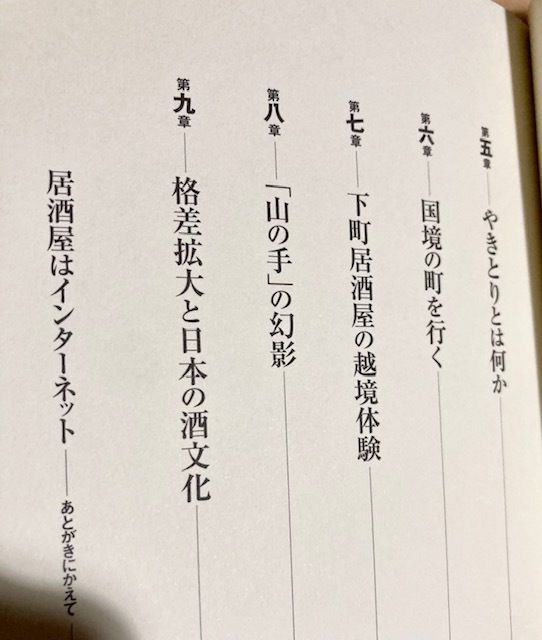 第五章──やきとりとは何か
第六章──国境の町を行く
第七章──下町居酒屋の越境体験
第八章──「山の手」の幻影
第九章──格差拡大と日本の酒文化
居酒屋はインターネット──あとがきにかえて